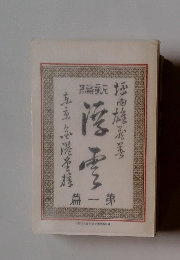 新編
坪内雄蔵著
浮雲
東京 金港堂梓
第一篇